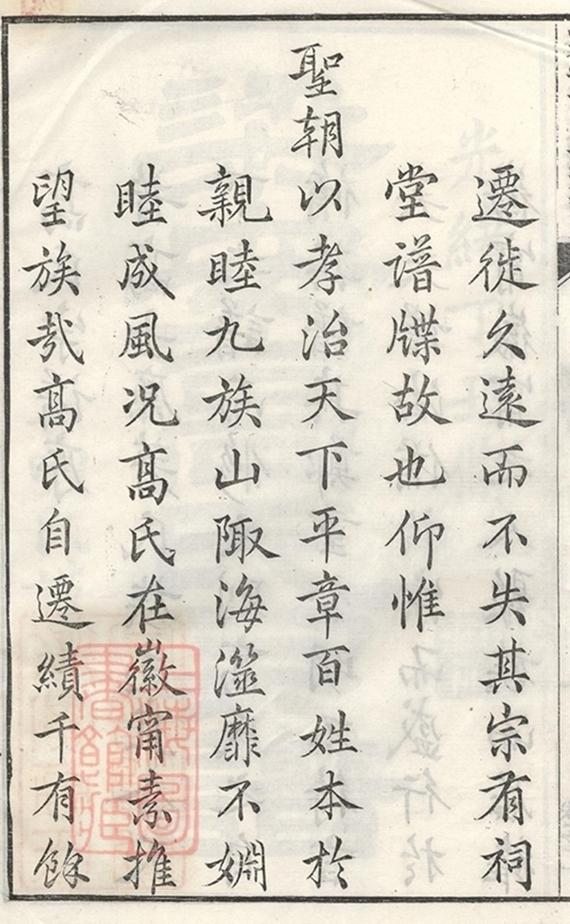 遷徙久遠而不失其宗有祠
堂譜牒故也仰惟
聖朝以孝治天下平章百姓本於
親睦九族山陬海澨靡不婣
睦成風况髙氏在徽甯素推
望族哉髙氏自遷績千有餘